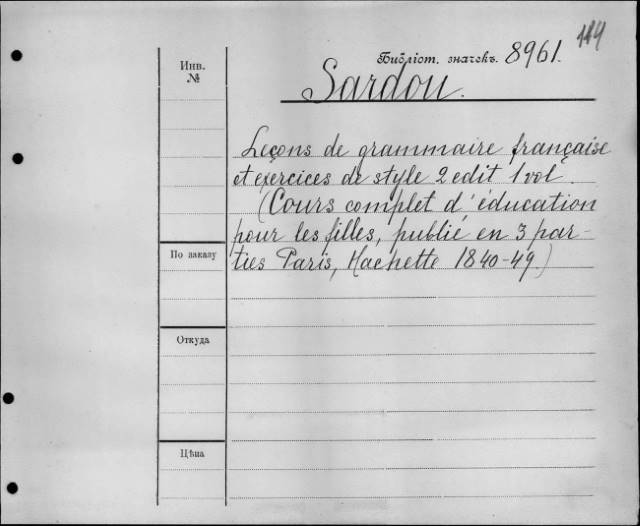 119
Библіот. значекъ. 8961.
Инв.
№
Sardou.
Leçons de grammaire française
et exercices de style 2 edit 1 vol
(Cours complet d'éducation
pour les filles, publié en 3 par-
ties Paris, Hachette 1840-49.)
По заказу
Откуда
Цѣна